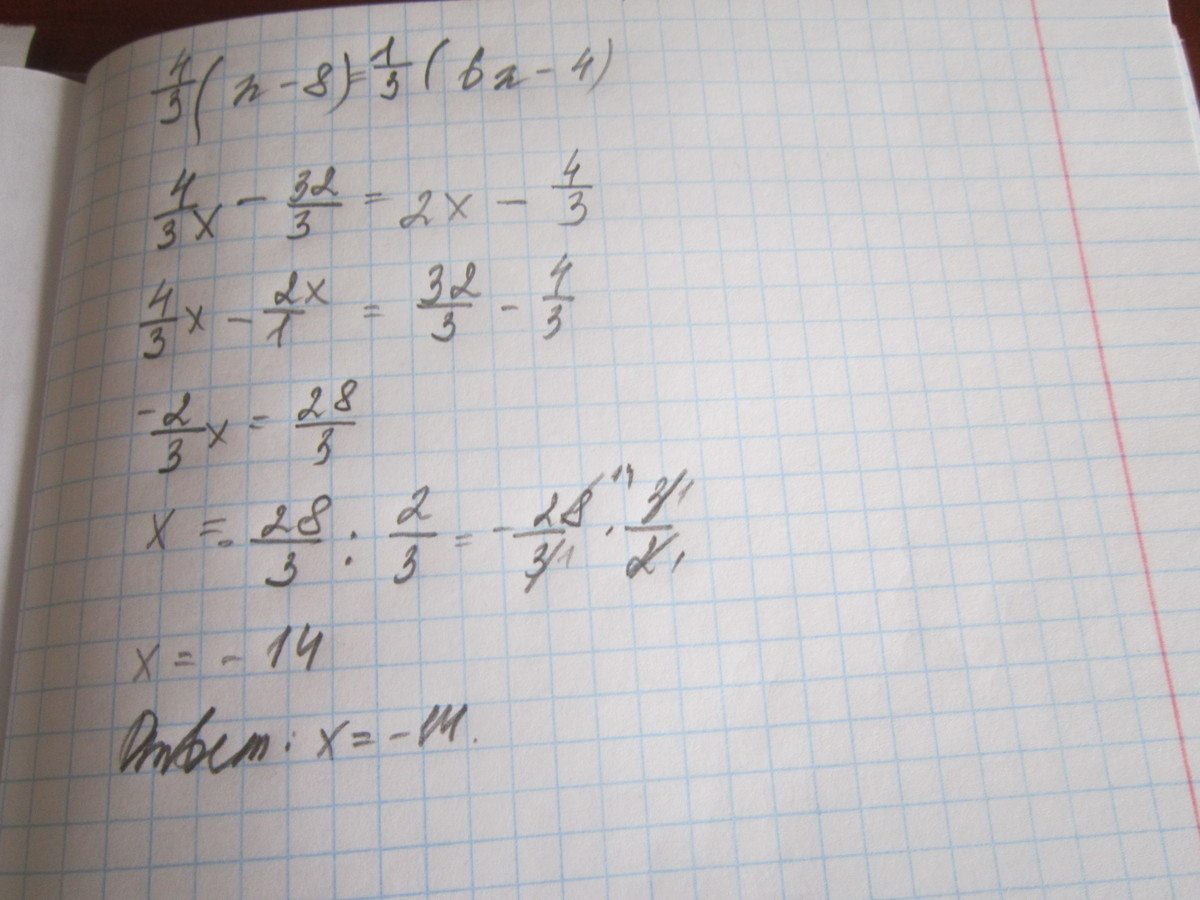 4/3 (x - 8) = 1/3 (6x - 4)
4/3 x - 32/3 = 2x - 4/3
4/3 x - 2x/1 = 32/3 - 4/3
-2/3 x = 28/3
x = - 28/3 : 2/3 = - 28/3 14/1 · 3/2 1/1
x = - 14
Ответ: x = -14.